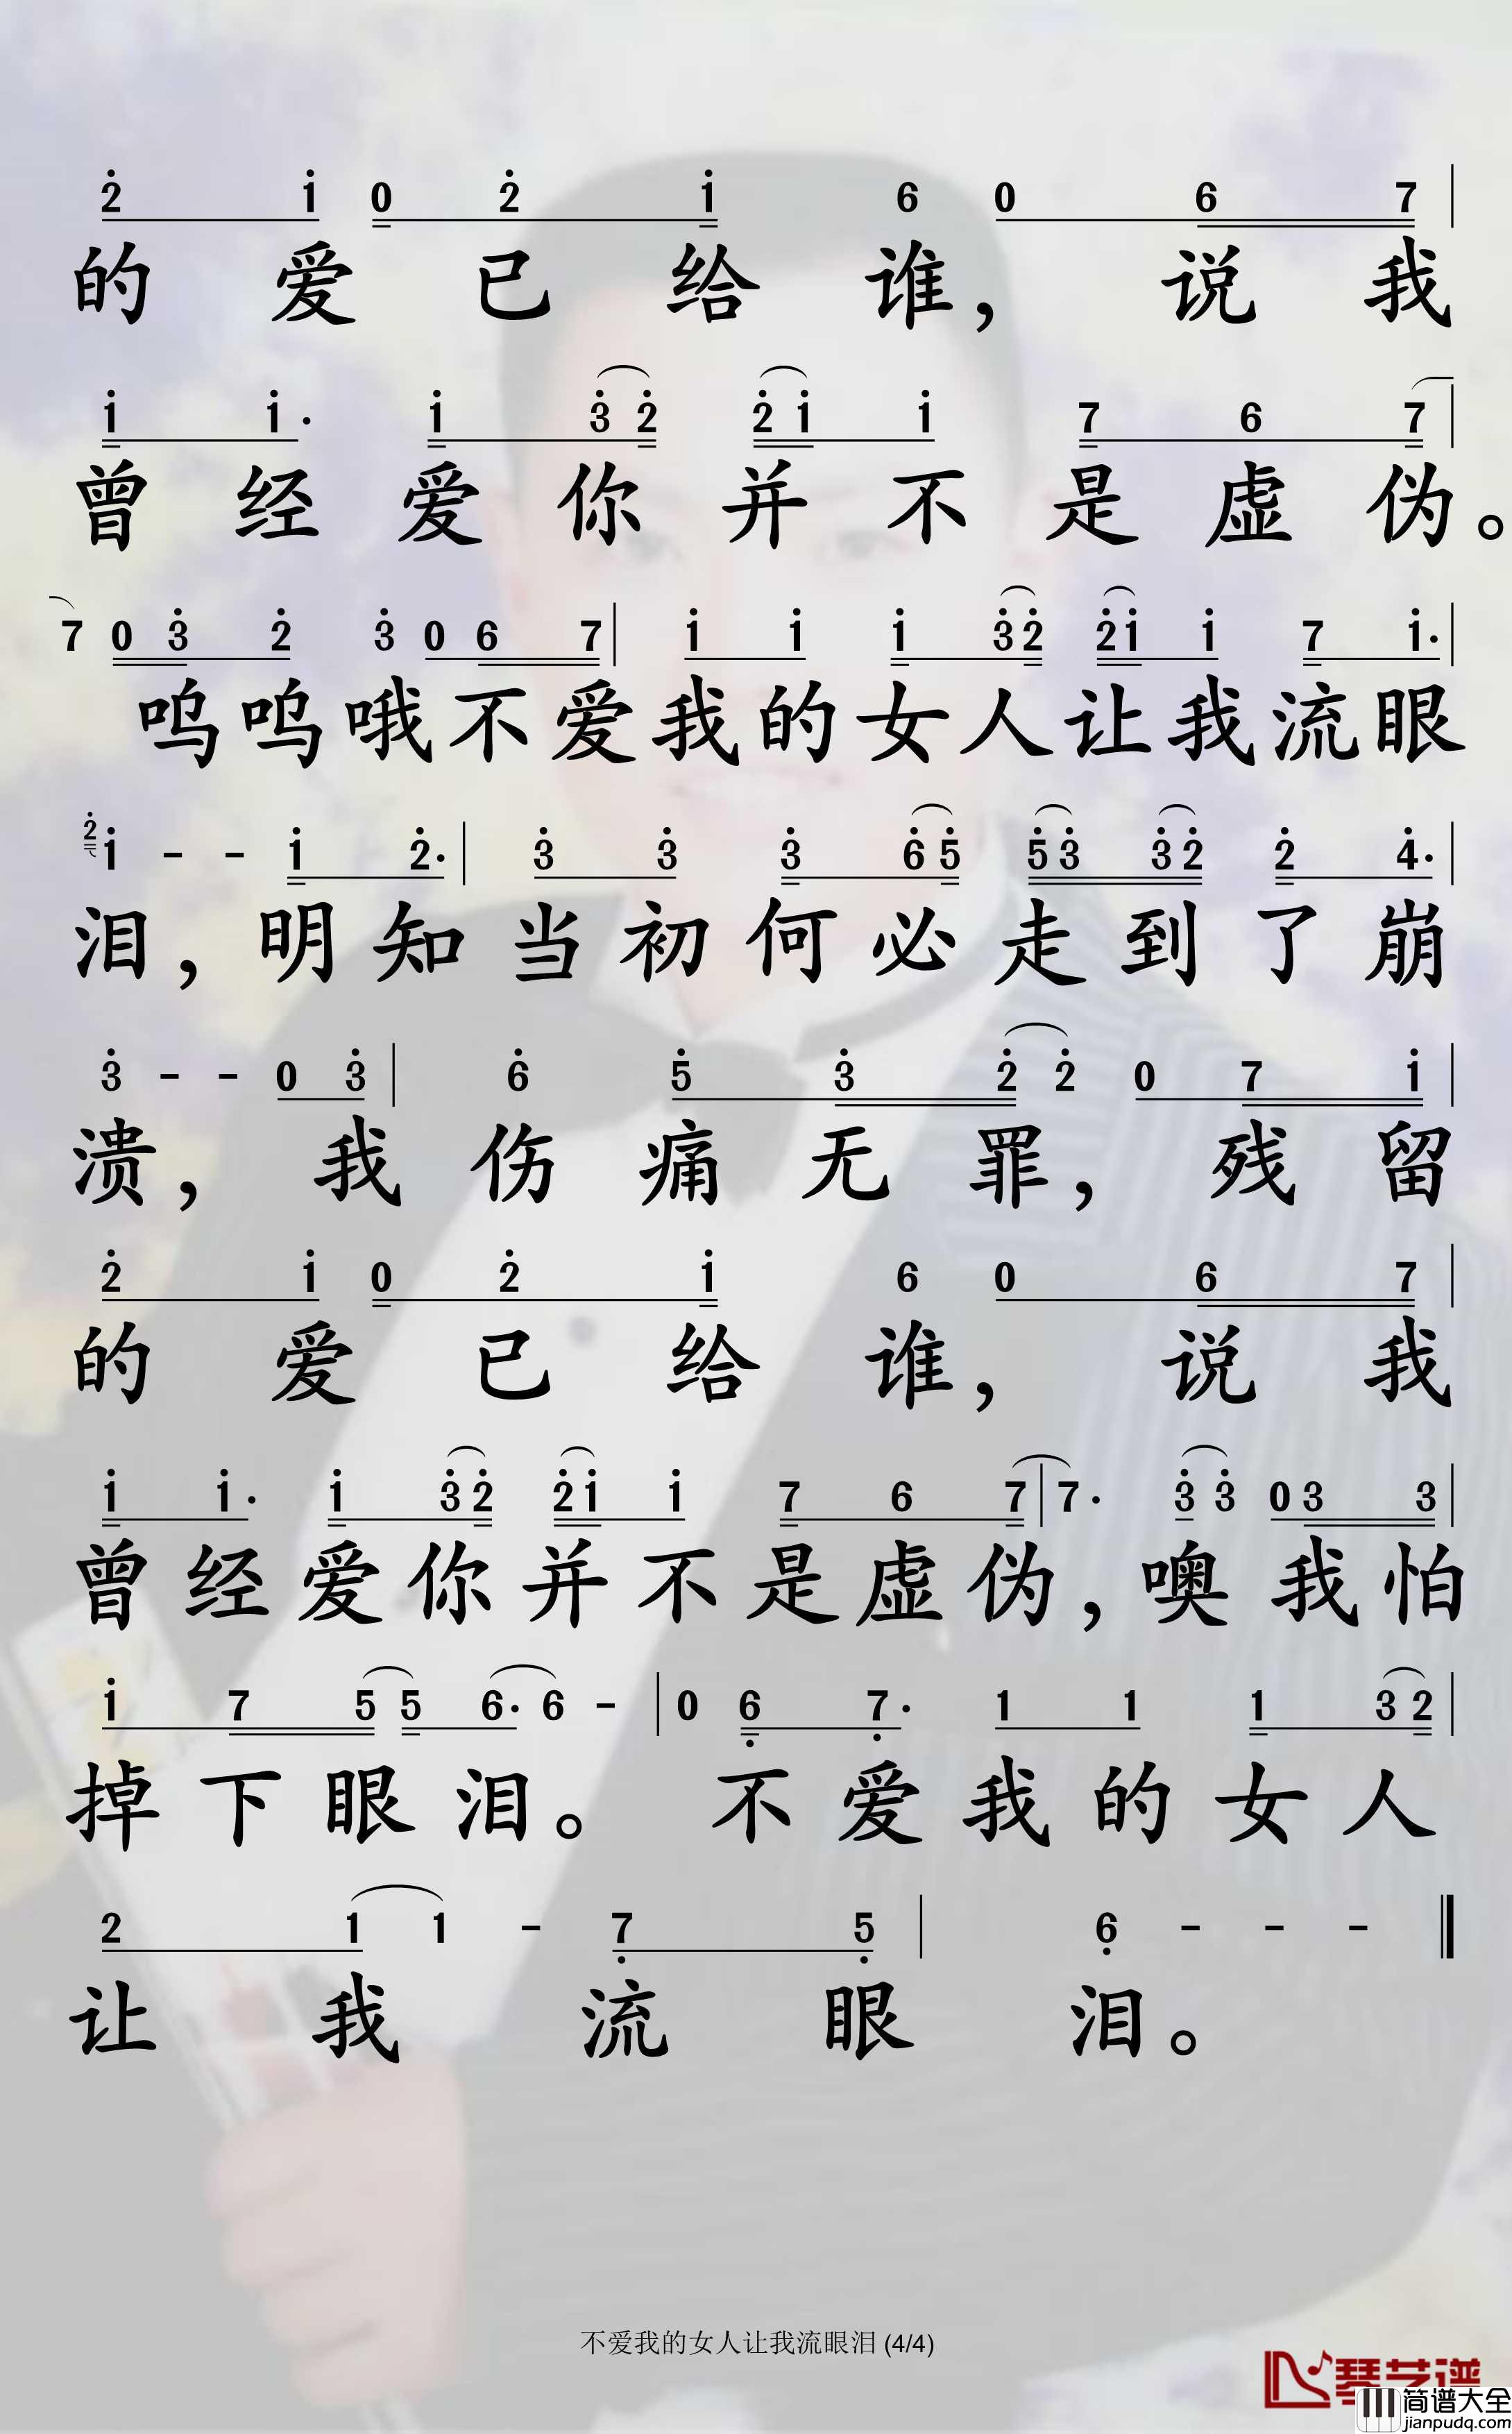 2 1 0 2 1 6 0 6 7
的爱已给谁，说我
1 1· 1 3 2 2 1 1 7 6 7
曾经爱你并不是虚伪。
7 0 3 2 3 0 6 7 | 1 1 1 3 2 2 1 1 7 1·
呜呜哦不爱我的女人让我流眼
2 1 - - 1 2· | 3 3 3 6 5 5 3 3 2 2 4·
泪，明知当初何必走到了崩
3 - - 0 3 | 6 5 3 2 2 0 7 1
溃，我伤痛无罪，残留
2 1 0 2 1 6 0 6 7
的爱已给谁，说我
1 1· 1 3 2 2 1 1 7 6 7 | 7· 3 3 0 3 3
曾经爱你并不是虚伪，噢我怕
1 7 5 5 6· 6 - | 0 6 7· 1 1 1 3 2
掉下眼泪。不爱我的女人
2 1 1 - 7 5 | 6 - - -
让我流眼泪。
不爱我的女人让我流眼泪 (4/4)
琴艺谱
简谱大全
jianpudq.com